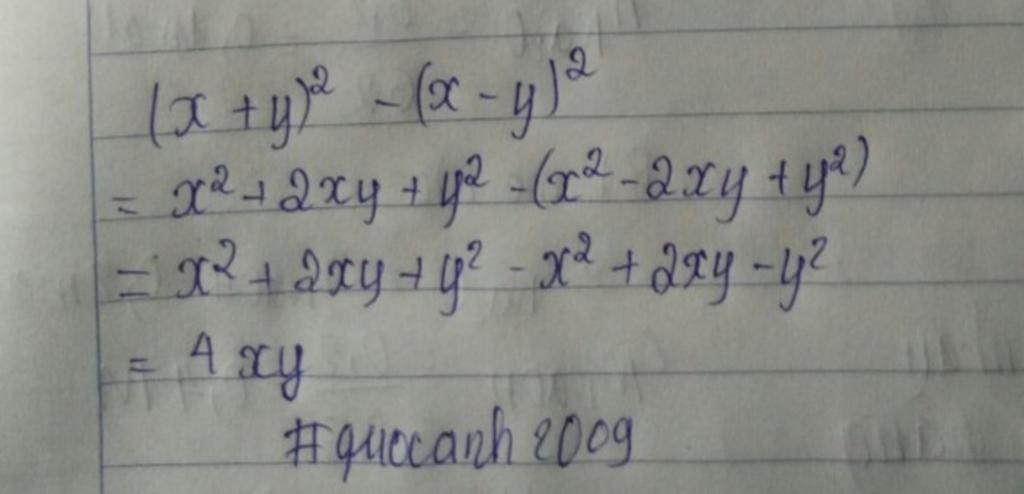 (x + y)² - (x - y)²
= x² + 2xy + y² - (x² - 2xy + y²)
= x² + 2xy + y² - x² + 2xy - y²
= 4xy
#quocanh2009